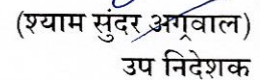 (श्याम सुंदर अग्रवाल)
उप निदेशक